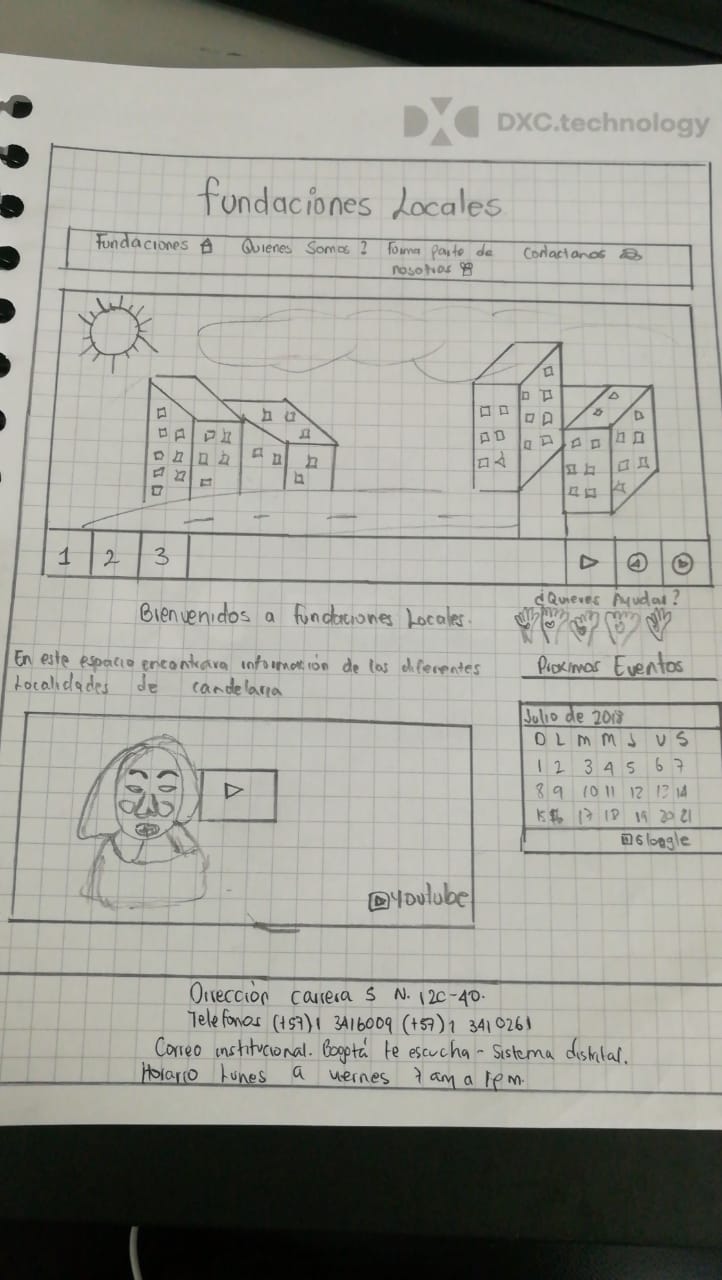 DXC.technology
Fundaciones Locales
Fundaciones Quienes Somos? Forma parte de Contactanos
nosotros
1 2 3
¿Quieres Ayudar?
Bienvenidos a fundaciones Locales.
En este espacio encontrara información de las diferentes
Localidades de candelaria
Proximos Eventos
Julio de 2018
D L M M J V S
1 2 3 4 5 6 7
8 9 10 11 12 13 14
15 16 17 18 19 20 21
Google
Youtube
Dirección carrera 5 N. 12C-40.
Telefonos (+57)1 3416009 (+57)1 3410261
Correo institucional. Bogotá te escucha - Sistema distrital.
Horario Lunes a viernes 7 am a pm.